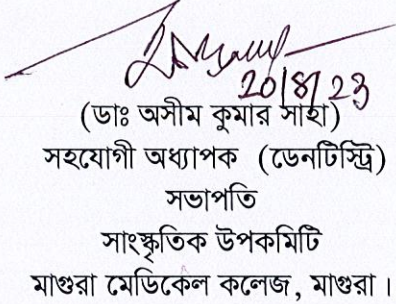 20/8/23
(ডাঃ অসীম কুমার সাহা)
সহযোগী অধ্যাপক (ডেনটিস্ট্রি)
সভাপতি
সাংস্কৃতিক উপকমিটি
মাগুরা মেডিকেল কলেজ, মাগুরা।